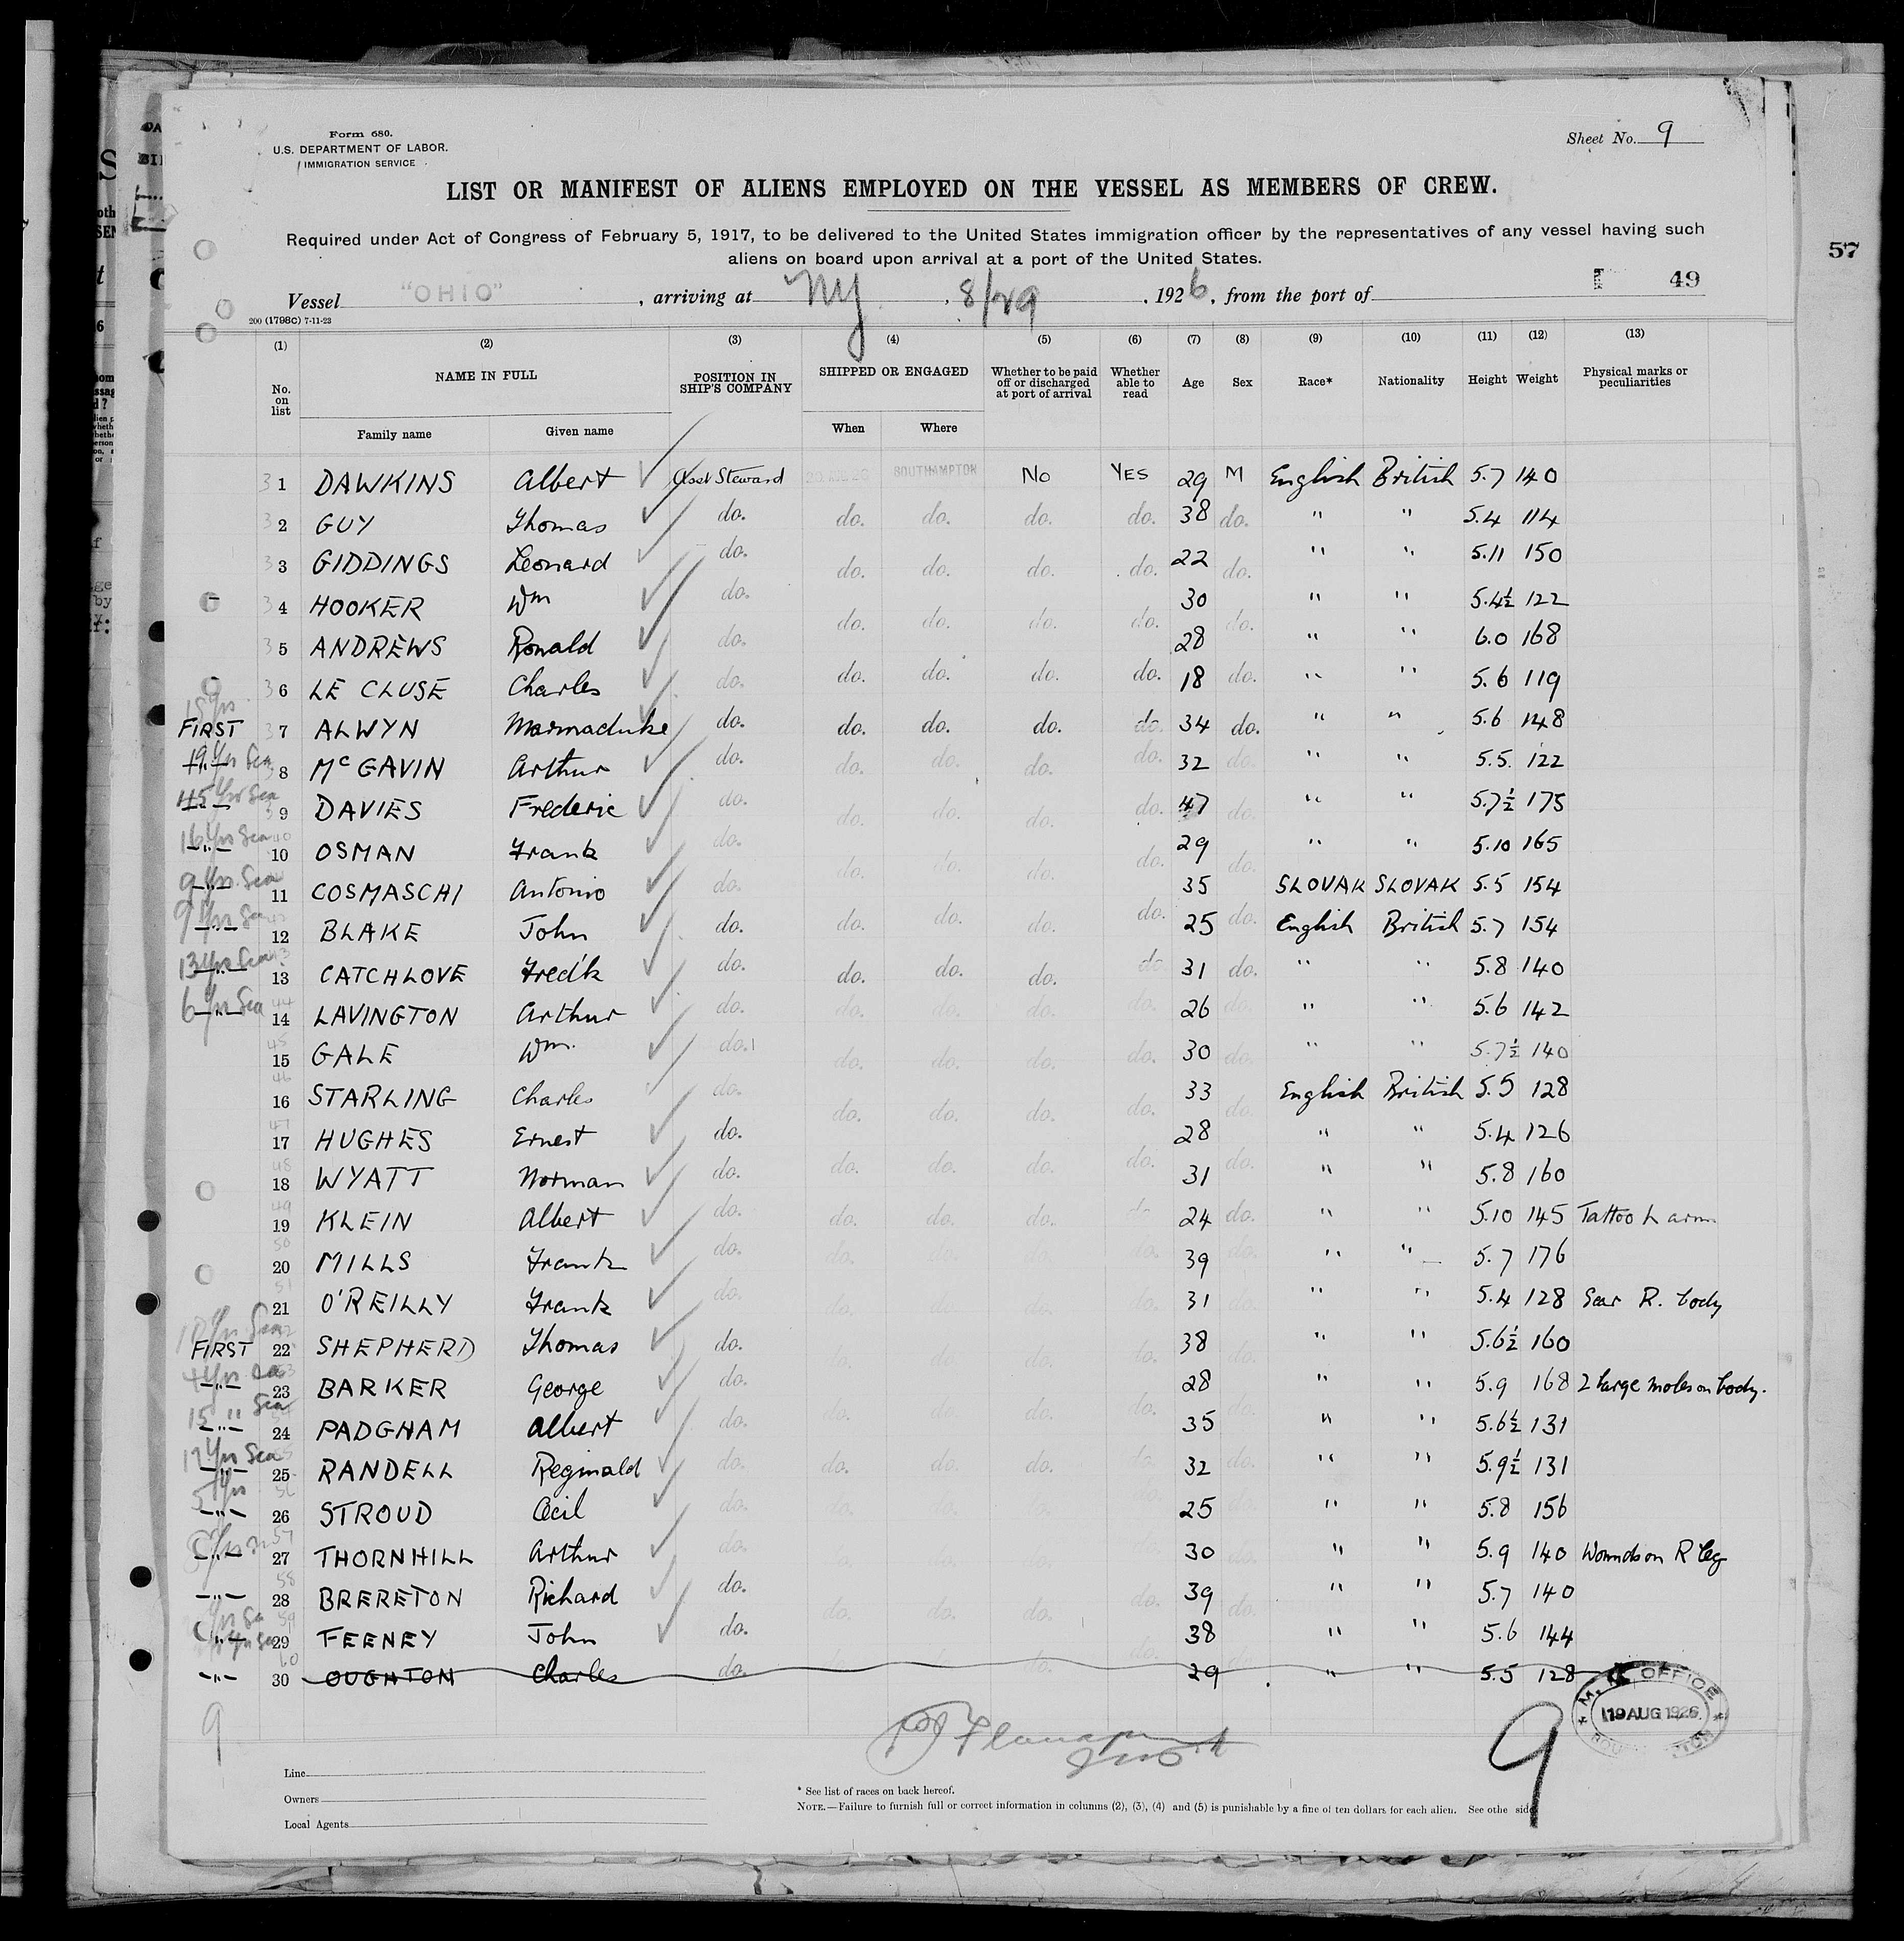 Form 680.
U.S. DEPARTMENT OF LABOR.
IMMIGRATION SERVICE
Sheet No. 9
LIST OR MANIFEST OF ALIENS EMPLOYED ON THE VESSEL AS MEMBERS OF CREW.
Required under Act of Congress of February 5, 1917, to be delivered to the United States immigration officer by the representatives of any vessel having such
aliens on board upon arrival at a port of the United States.
57
49
Vessel "OHIO", arriving at NY, 8/29, 1926, from the port of
200 (1798C) 7-11-23
(1) (2) (3) (4) (5) (6) (7) (8) (9) (10) (11) (12) (13)
No. on list NAME IN FULL POSITION IN SHIP'S COMPANY SHIPPED OR ENGAGED Whether to be paid off or discharged at port of arrival Whether able to read Age Sex Race* Nationality Height Weight Physical marks or peculiarities
Family name Given name When Where
1 DAWKINS Albert Asst Steward SOUTHAMPTON No YES 29 M English British 5.7 140
2 GUY Thomas do. do. do. do. do. 38 do. " " 5.4 114
3 GIDDINGS Leonard do. do. do. do. do. 22 do. " " 5.11 150
4 HOOKER Wm do. do. do. do. do. 30 do. " " 5.4½ 122
5 ANDREWS Ronald do. 28 " " 6.0 168
6 LE CLUSE Charles do. do. do. do. do. 18 do. " " 5.6 119
FIRST 7 ALWYN Marmaduke do. do. do. do. do. 34 do. " " 5.6 148
19 Yrs Sea 8 McGAVIN Arthur do. do. do. do. do. 32 do. " " 5.5. 122
45 Yrs Sea 9 DAVIES Frederic do. do. do. do. do. 47 do. " " 5.7½ 175
16 Yrs Sea 10 OSMAN Frank do. do. do. do. do. 29 do. " " 5.10 165
9 Yrs Sea 11 COSMASCHI Antonio do. 35 SLOVAK SLOVAK 5.5 154
9 Yrs Sea 12 BLAKE John do. do. do. do. do. 25 do. English British 5.7 154
13 Yrs Sea 13 CATCHLOVE Fred'k do. do. do. do. do. 31 do. " " 5.8 140
6 Yrs Sea 14 LAVINGTON Arthur do. do. do. do. do. 26 do. " " 5.6 142
15 GALE Wm. do. do. do. do. do. 30 do. " " 5.7½ 140
16 STARLING Charles do. do. do. do. do. 33 do. English British 5.5 128
17 HUGHES Ernest do. 28 " " 5.4 126
18 WYATT Norman do. do. do. do. do. 31 do. " " 5.8 160
19 KLEIN Albert do. do. do. do. do. 24 do. " " 5.10 145 Tattoo L arm
20 MILLS Frank do. do. do. do. do. 39 do. " " 5.7 176
21 O'REILLY Frank do. do. do. do. do. 31 do. " " 5.4 128 Scar R. body
FIRST 22 SHEPHERD Thomas do. do. do. do. do. 38 do. " " 5.6½ 160
23 BARKER George do. do. do. do. do. 28 do. " " 5.9 168 2 large moles on body.
15 " Sea 24 PADGHAM Albert do. 35 " " 5.6½ 131
17 Yrs Sea 25 RANDELL Reginald do. do. do. do. do. 32 do. " " 5.9½ 131
5 Yrs 26 STROUD Cecil do. do. do. do. do. 25 do. " " 5.8 156
27 THORNHILL Arthur do. 30 do. " " 5.9 140 Wounds on R leg
28 BRERETON Richard do. do. do. do. do. 39 do. " " 5.7 140
29 FEENEY John do. 38 " " 5.6 144
30 OUGHTON Charles do. 29 " " 5.5 128
M. M. OFFICE
19 AUG 1926
9
9
Line
Owners
Local Agents
* See list of races on back hereof.
NOTE.—Failure to furnish full or correct information in columns (2), (3), (4) and (5) is punishable by a fine of ten dollars for each alien. See othe side